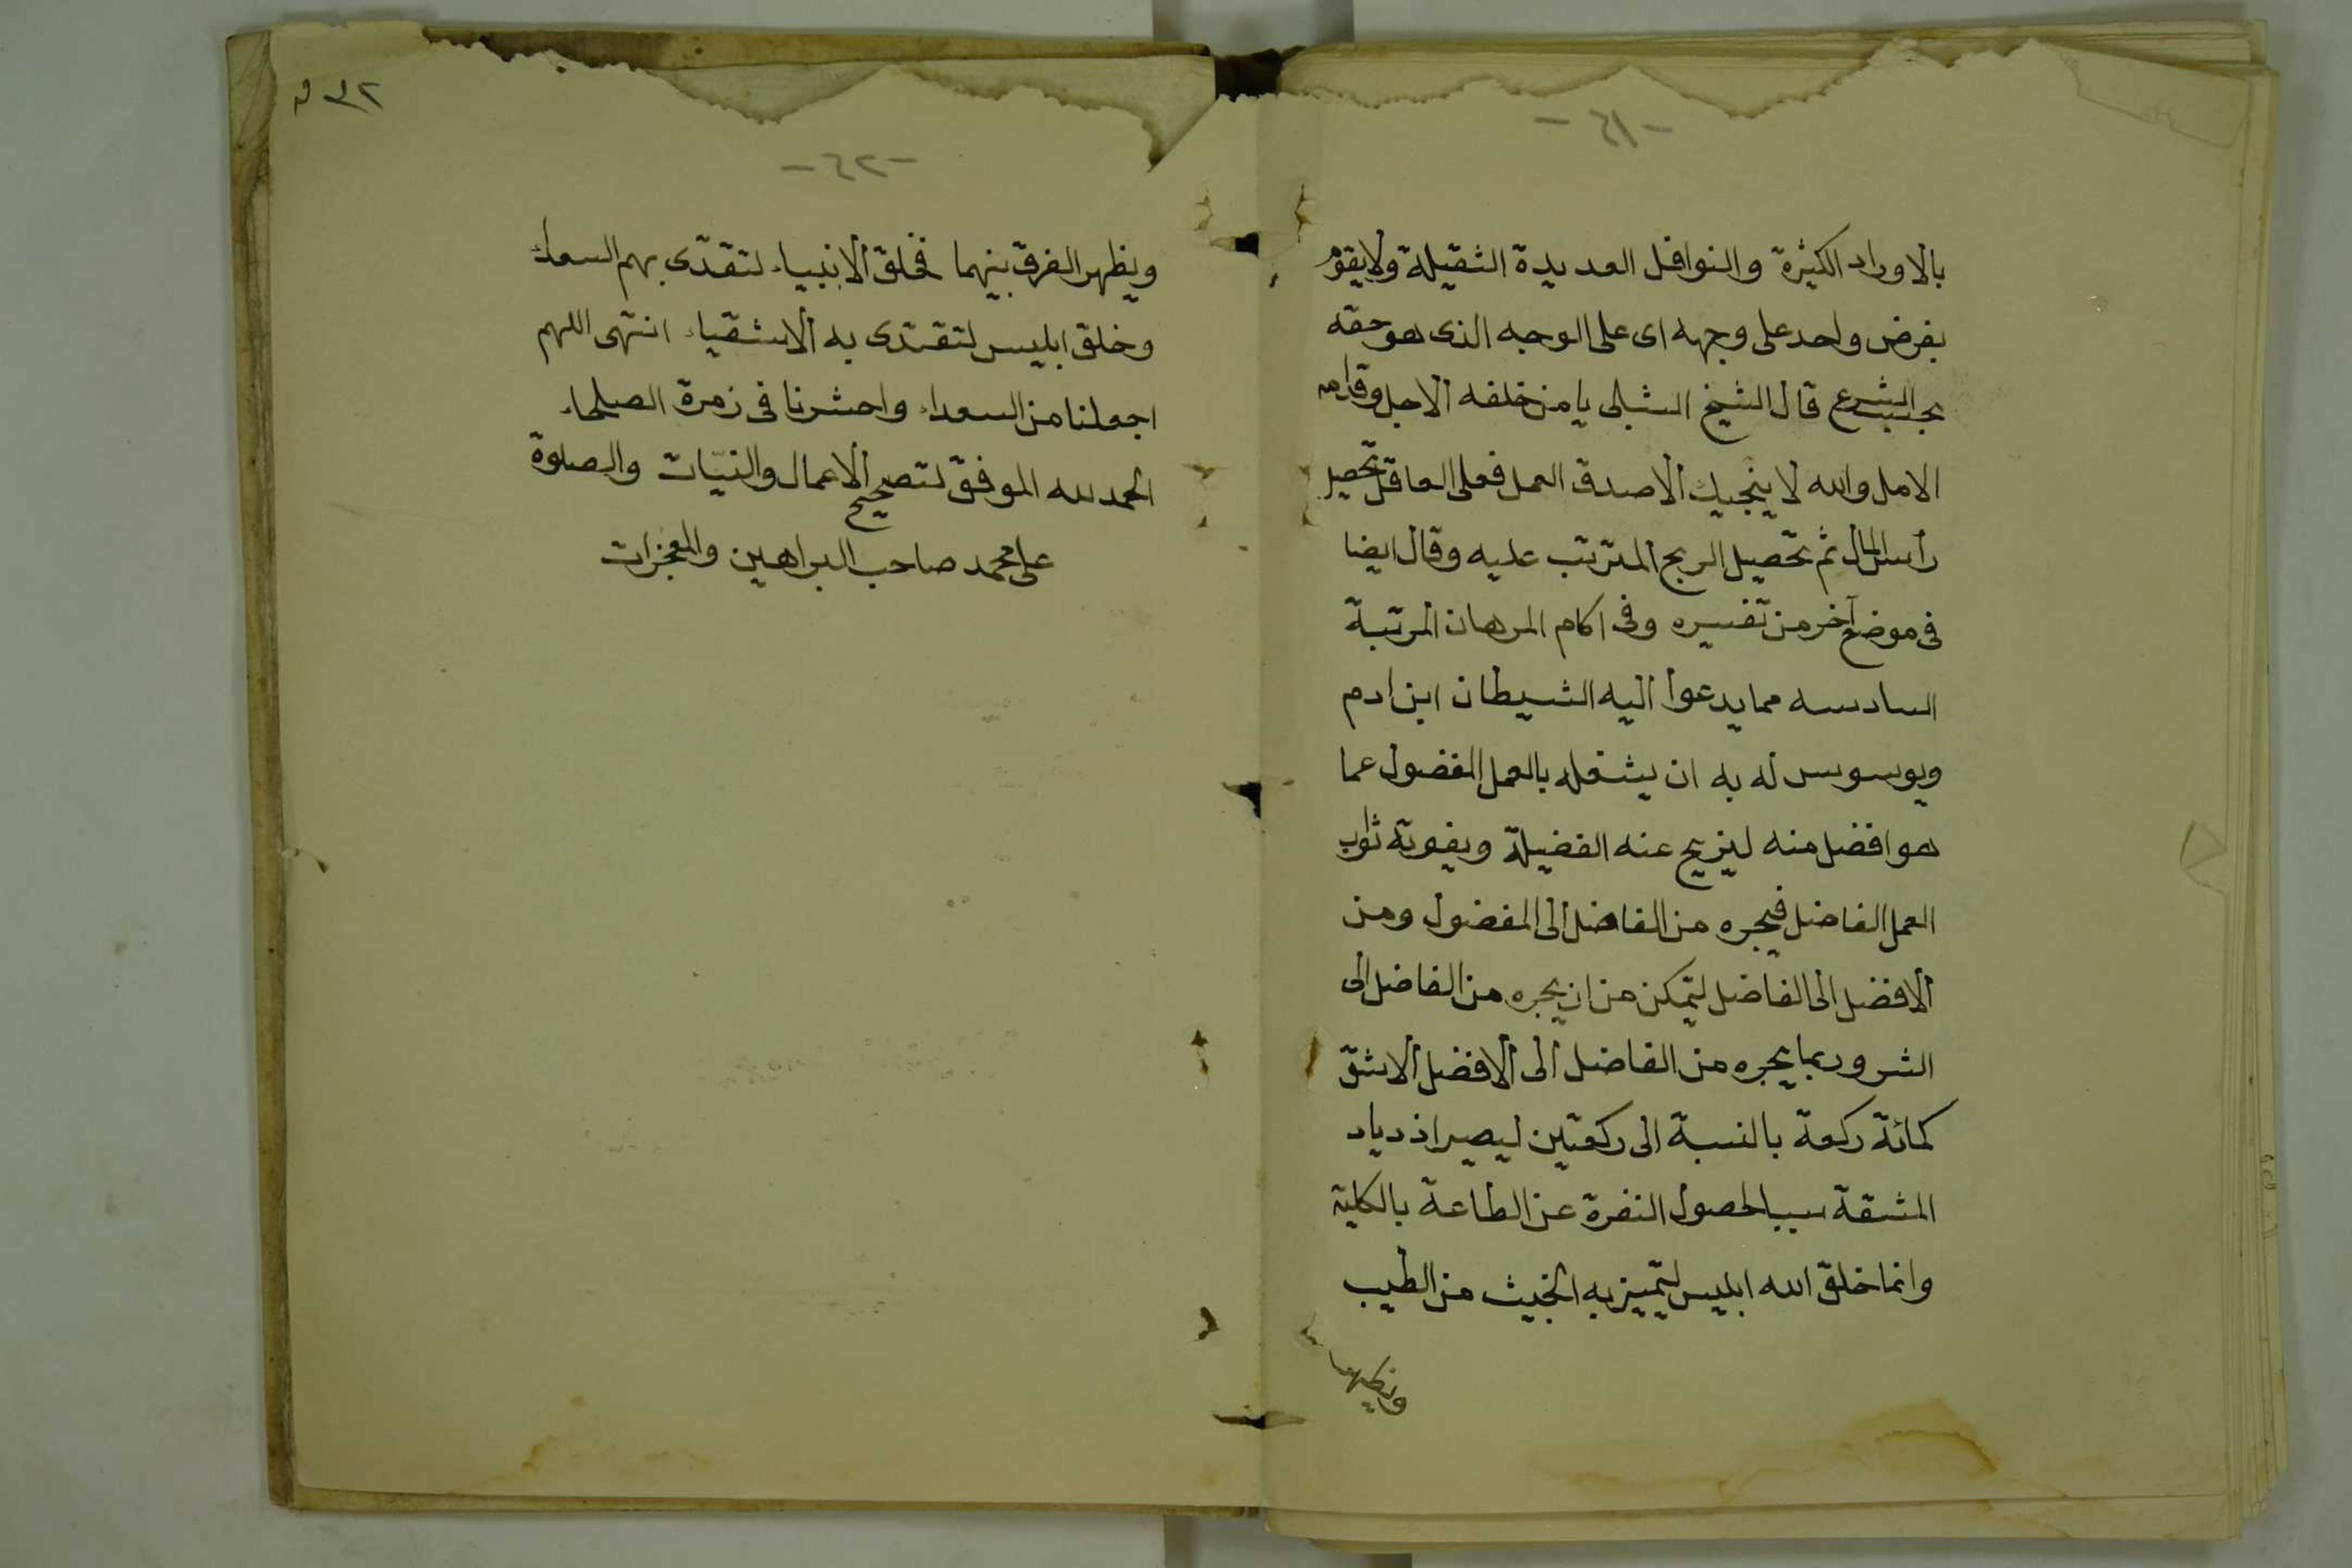 -٤١-
بالاوراد الكثيرة والنوافل العديدة الثقيلة ولايقوم
بفرض واحد على وجهه اى على الوجه الذى هو حقه
بحسب الشرع قال الشيخ الشبلى يا من خلفه الاجل وقدامه
الامل والله لا ينجيك الا صدق العمل فعلى العاقل تحصيل
رأس المال ثم تحصيل الربح المترتب عليه وقال ايضا
فى موضع آخر من تفسيره وفى اكام المرهان المرتبة
السادسه مما يدعوا اليه الشيطان ابن ادم
ويوسوس له به ان يشغله بالعمل المفضول عما
هو افضل منه ليزيح عنه الفضيلة ويفوته ثواب
العمل الفاضل فيجره من الفاضل الى المفضول ومن
الافضل الى الفاضل ليتمكن من ان يجره من الفاضل الى
الشر وربما يجره من الفاضل الى الافضل الاشق
كمائة ركعة بالنسبة الى ركعتين ليصير ازدياد
المشقة سببا لحصول النفرة عن الطاعة بالكلية
وانما خلق الله ابليس ليتميز به الخبيث من الطيب
ويظهر
-٤٢-
ويظهر الفرق بينهما فخلق الانبياء لتقتدى بهم السعداء
وخلق ابليس لتقتدى به الاشقياء انتهى اللهم
اجعلنا من السعداء واحشرنا فى زمرة الصلحاء
الحمد لله الموفق لتصحيح الاعمال والنيّات والصلوة
على محمد صاحب البراهين والمعجزات